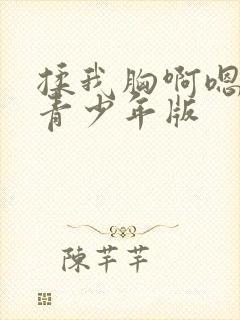 揉我胸啊嗯
青少年版
陳芊芊